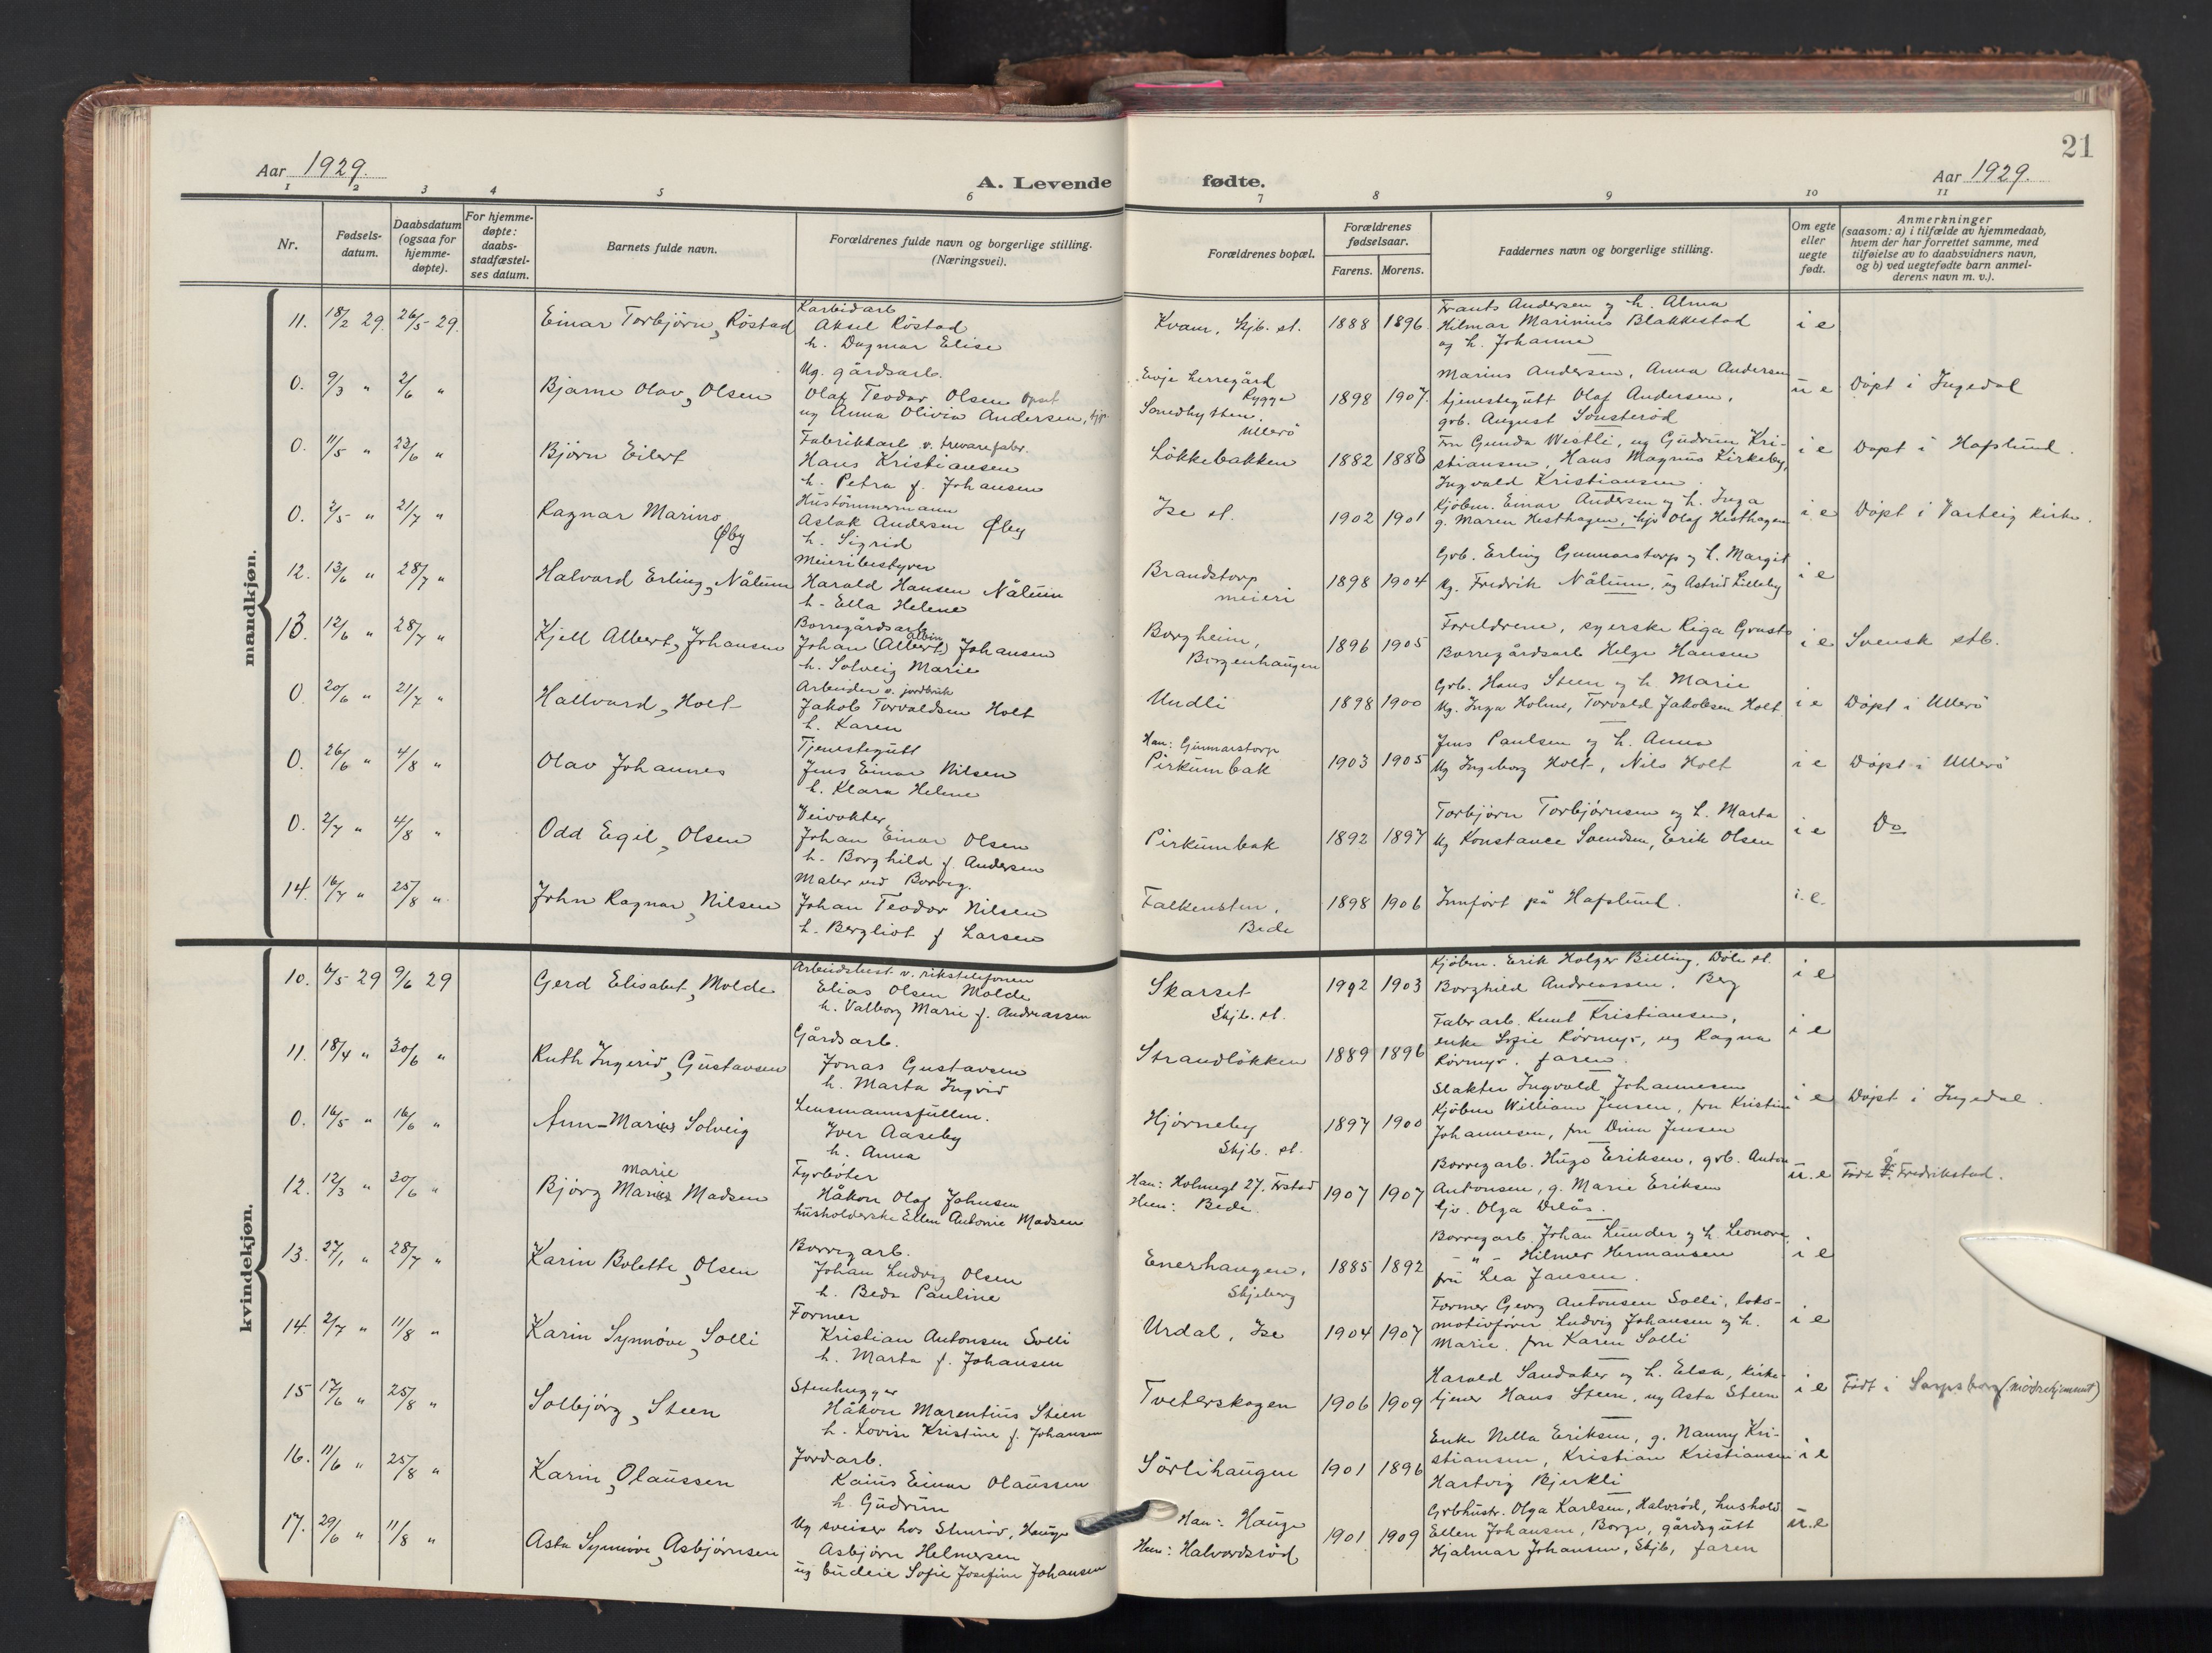 21
Aar 1929.
A. Levende fødte.
Aar 1929.
1 2 3 4 5 6 7 8 9 10 11
Nr.
Fødsels-
datum.
Daabsdatum
(ogsaa for
hjemme-
døpte).
For hjemme-
døpte:
daabs-
stadfæstel-
ses datum.
Barnets fulde navn.
Forældrenes fulde navn og borgerlige stilling.
(Næringsvei).
Forældrenes bopæl.
Forældrenes
fødselsaar.
Farens. Morens.
Faddernes navn og borgerlige stilling.
Om egte
eller
uegte
født.
Anmerkninger
(saasom: a) i tilfælde av hjemmedaab,
hvem der har forrettet samme, med
tilføielse av to daabsvidners navn,
og b) ved uegtefødte barn anmel-
derens navn m. v.).
mandkjøn.
11. 18/2 29. 26/5 29.
Einar Torbjörn, Röstad
Karbidarb
Aksel Röstad
h. Dagmar Elise
Kvam, Skjb. st.
1888 1896
Frants Andersen og h. Alma
Hilmar Marinius Blakkestad
og h. Johanne
i e
0. 9/3 " 2/6 "
Bjarne Olav, Olsen
Ug. gårdsarb.
Olaf Teodor Olsen
ug Anna Olivia Andersen,
Evje herregård
Rygge
Smedhytten
Ullerö
1898 1907.
Marius Andersen, Anna Andersen
tjenestegutt Olaf Andersen,
grb. August Sonsteröd
u e
Döpt i Ingedal
0. 11/5 " 23/6 "
Bjørn Eilert
Fabrikkarb v. trevarefabr.
Hans Kristiansen
h. Petra f. Johansen
Lökkebakken
1882 1888
Fru Gunda Westli, ug Gudrun Kri-
stiansen, Hans Magnus Kirkeby,
Ingvald Kristiansen
i e
Döpt i Hafslund.
0. 2/5 " 21/7 "
Ragnar Marino
Øby
Hustömmermann
Aslak Andersen Øby
h. Sigrid
Ise st.
1902 1901
Kjöbm. Einar Andersen og h. Inga
g. Maren Hesthagen, Olaf Hesthagen
i e
Döpt i Varteig kirke.
12. 13/6 " 28/7 "
Halvard Erling, Nålum
Meieribestyrer
Harald Hansen Nålum
h. Ella Helene
Brandstorp
meieri
1898 1904
Grb. Erling Gunnarstorp og h. Margit
Ug. Fredrik Nålum, ug Astrid Lilleby
i e
13. 12/6 " 28/7 "
Kjell Albert, Johansen
Borregårdsarb
Albin
Johan (Albert) Johansen
h. Solveig Marie
Borgheim,
Borgenhaugen
1896 1905
Foreldrene, syerske Riga
Borregårdsarb Helge Hansen
i e
Svensk stb.
0. 20/6 " 21/7 "
Hallvard, Holt
Arbeider v. jordbruk
Jakob Torvaldsen Holt
h. Karen
Undli
1898 1900
Grb. Hans Steen og h. Marie
Ug. Inga Holm, Torvald Jakobsen Holt
i e
Döpt i Ullerö
0. 26/6 " 4/8 "
Olav Johannes
Tjenestegutt
Jens Einar Nilsen
h. Klara Helene
Han: Gunnarstorp
Pirkumbak
1903 1905
Jens Paulsen og h. Anna
Ug Ingeborg Holt, Nils Holt
i e
Döpt i Ullerö
0. 2/7 " 4/8 "
Odd Egil, Olsen
Veivokter
Johan Einar Olsen
h. Borghild f. Andersen
Pirkumbak
1892 1897
Torbjørn Torbjørnsen og h. Marta
Ug Konstance Svendsen, Erik Olsen
i e
Do
14. 16/7 " 25/8 "
John Ragnar, Nilsen
Maler ved Borreg.
Johan Teodor Nilsen
h. Bergliot f Larsen
Falkensten,
Bede
1898 1906
Innfört på Hafslund.
i. e.
kvindekjøn.
10. 6/5 29 9/6 29
Gerd Elisabet, Molde
Arbeidsbest. v. rikstelefonen
Elias Olsen Molde
h. Valborg Marie f. Andreassen
Skarset
Skjb. st.
1992 1903
Kjöbm. Erik Holger Billing, Döle st.
Borghild Andreassen, Berg
i e
11. 18/4 " 30/6 "
Ruth Ingerid, Gustavsen
Gårdsarb.
Jonas Gustavsen
h. Marta Ingrid
Strandlökken
1889 1896
Fabr arb. Knut Kristiansen,
enke Sofie Rörmyr, ug Ragna
Rörmyr. faren.
i e
0. 16/5 " 16/6 "
Ann-Marie Solveig
Lensmannsfullm.
Iver Aaseby
h. Anna
Hjørneby
Skjb. st.
1897 1900
Slakter Ingvald Johannesen
Kjöbm William Jensen, fru Kristine
Johannesen, fru Dina Jensen
i e
Döpt i Ingedal.
12. 12/3 " 30/6 "
marie
Bjørg Madsen
Fyrböter
Håkon Olaf Johnsen
husholderske Ellen Antonie Madsen
Han: Holmegt 27, Frstad
Hun: Bede.
1907 1907
Borregarb. Hugo Eriksen, grb. Anton
Antonsen, g. Marie Eriksen
tjv. Olga Delås.
u. e
Född i Fredrikstad.
13. 27/1 " 28/7 "
Karin Bolette, Olsen
Borregarb.
Johan Ludvig Olsen
h. Beda Pauline
Enerhaugen,
Skjeberg
1885 1892
Borregarb. Johan Lunder og h. Leonora,
- " - Hilmer Hermansen
fru Lea Jansen.
i e
14. 2/7 " 11/8 "
Karin Synnöve, Solli
Former
Kristian Antonsen Solli
h. Marta f. Johansen
Urdal, Ise
1904 1907
Former Georg Antonsen Solli, loko-
motivförer Ludvig Johansen og h.
Marie. fru Karen Solli
i e
15 17/6 " 25/8 "
Solbjörg, Steen
Stenhugger
Håkon Marentius Steen
h. Lovise Kristine f. Johansen
Tveterskogen
1906 1909
Harald Sandaker og h. Elsa, kirke-
tjener Hans Steen, ug Asta Steen
i e
Født i Sarpsborg (mödrehjemmet)
16. 11/6 " 25/8 "
Karin, Olaussen
Jordarb.
Kaius Einar Olaussen
h. Gudrun
Sörlihaugen
1901 1896
Enke Nella Eriksen, g. Nanny Kri-
stiansen, Kristian Kristiansen
Hartvig Bjerkli
i e
17. 29/6 " 11/8 "
Asta Synnöve, Asbjørnsen
Ug sveiser hos Hauge
Asbjørn Helmersen
ug budeie Sofie Josefine Johansen
Han: Hauge
Hun: Halvardsröd
1901 1909
Grbhustr. Olga Karlsen, Halvröd, hushold
Ellen Johansen, Borge, gårdsgutt
Hjalmar Johansen, Skjb, faren
u. e